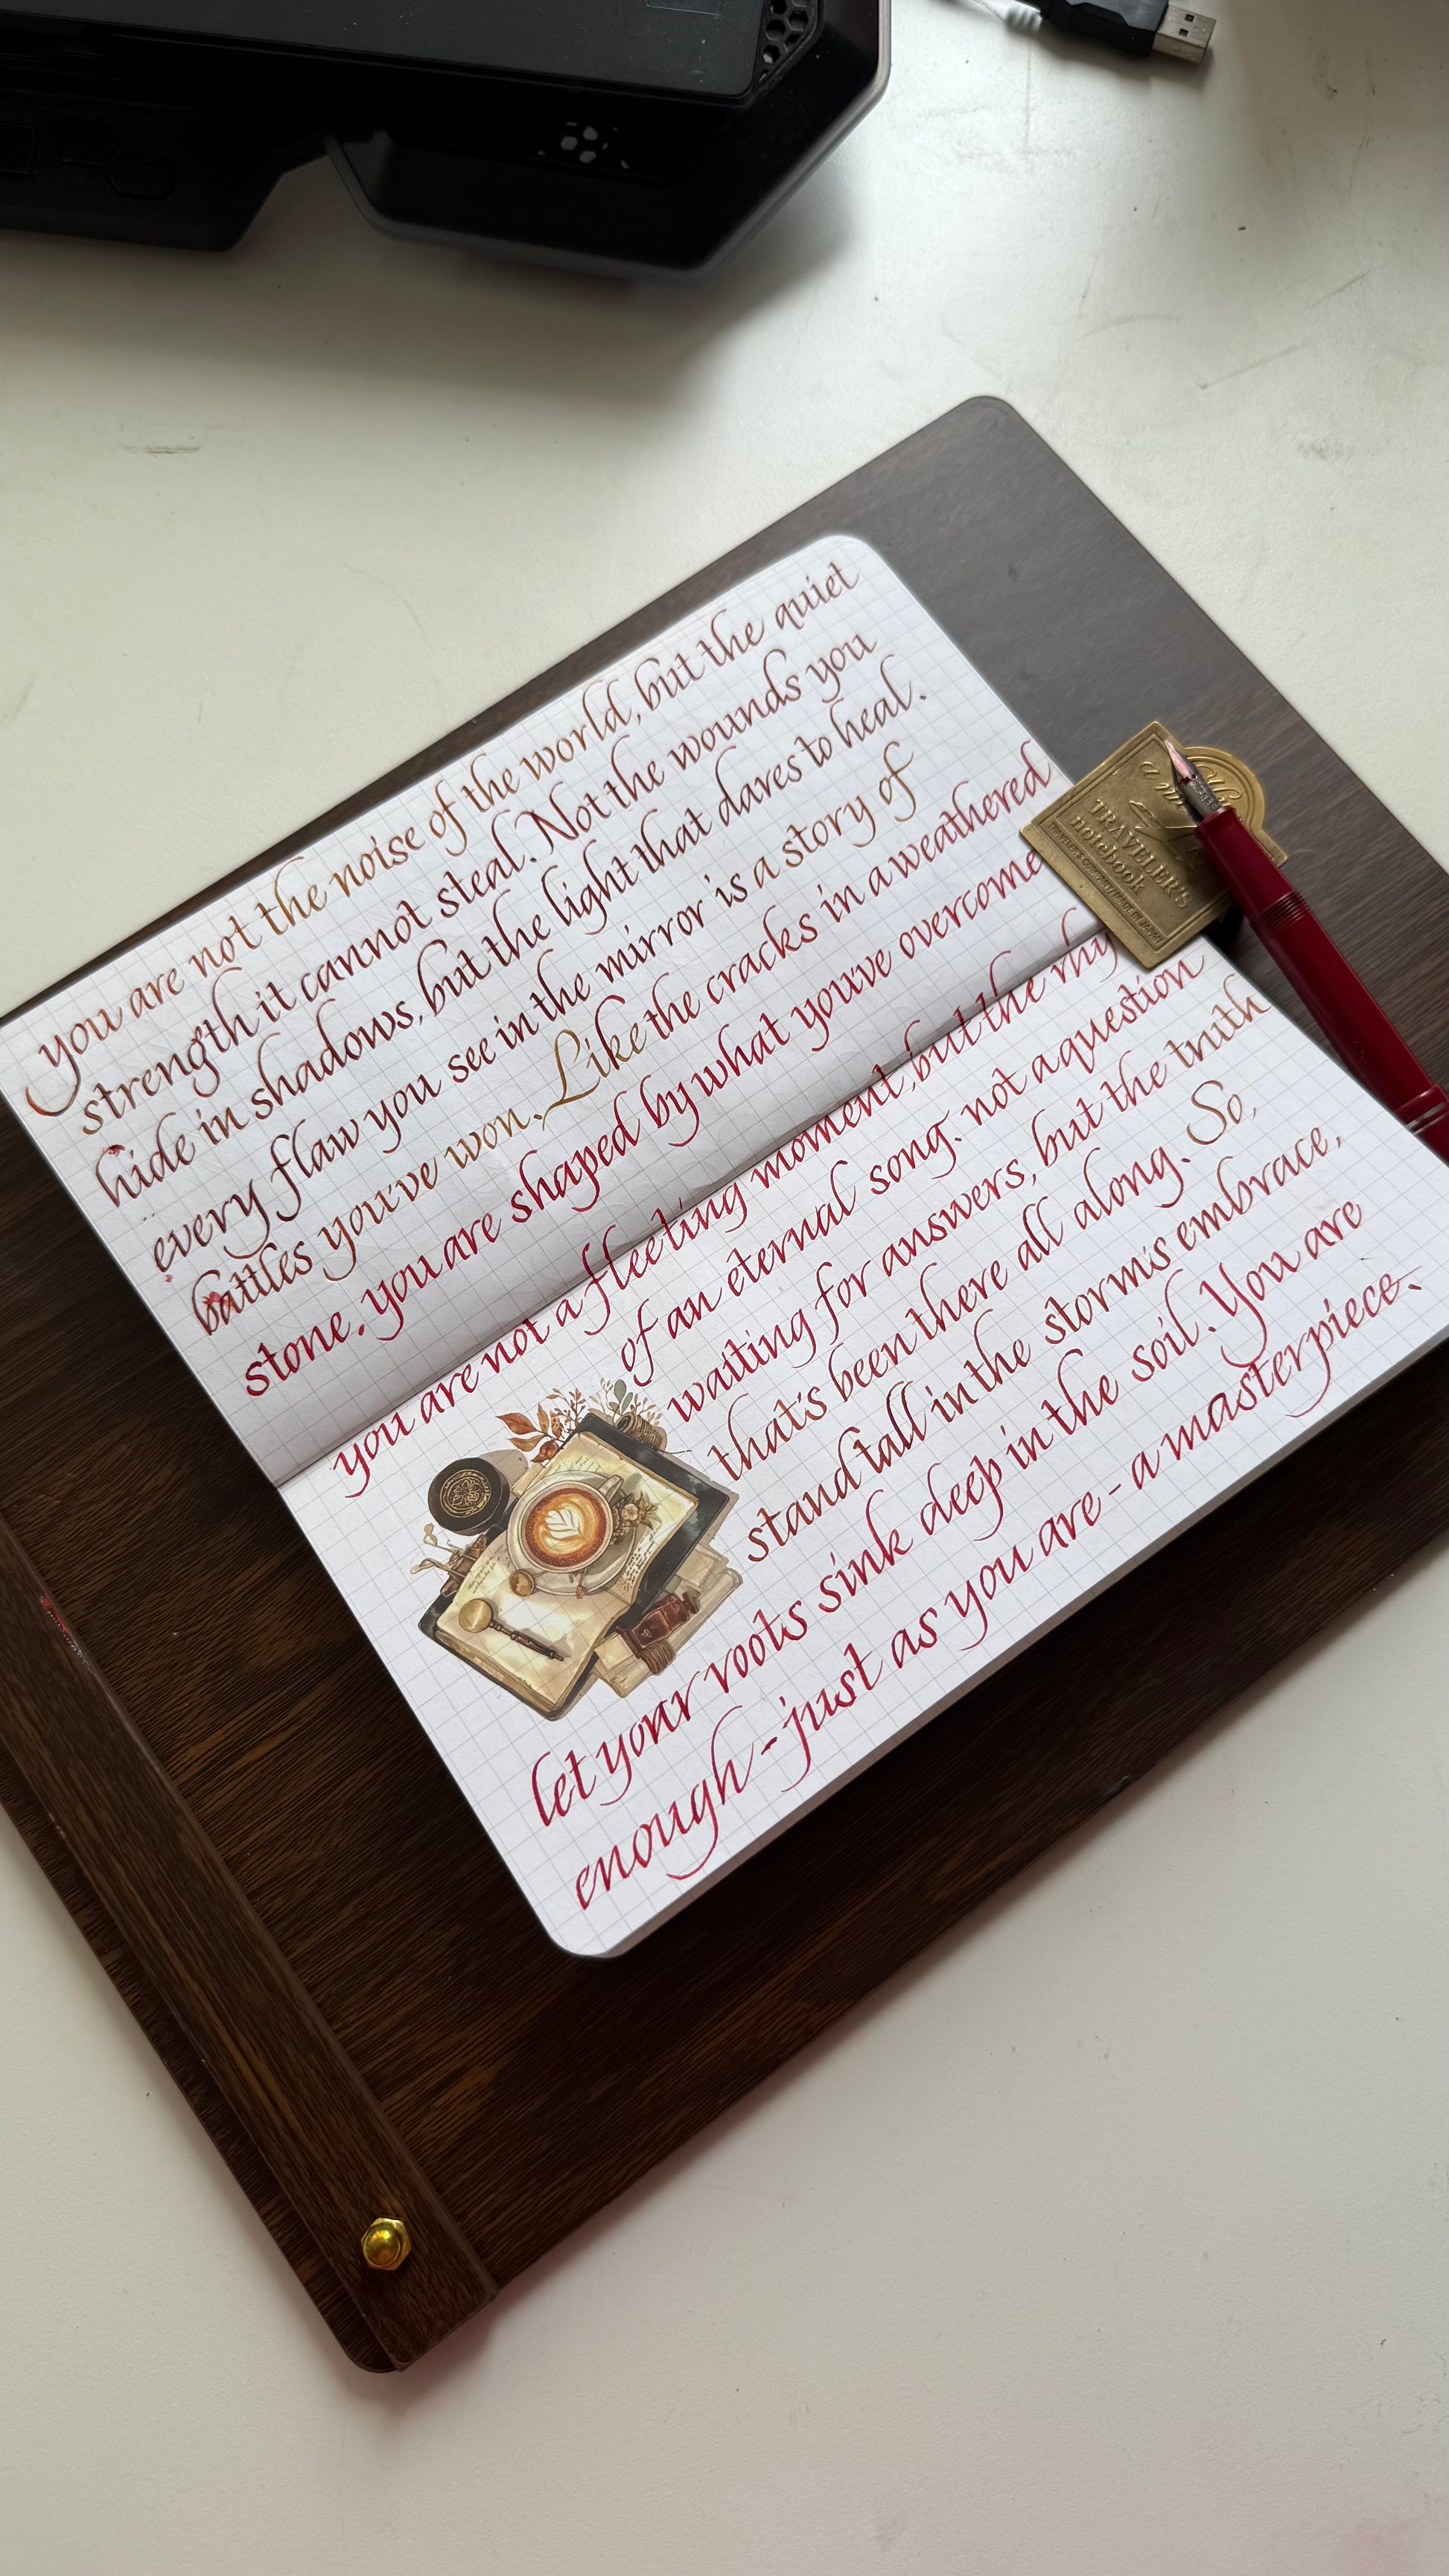 you are not the noise of the world, but the quiet
strength it cannot steal. Not the wounds you
hide in shadows, but the light that dares to heal.
every flaw you see in the mirror is a story of
battles you've won. Like the cracks in a weathered
stone, you are shaped by what you've overcome
you are not a fleeting moment, but the
of an eternal song. not a question
waiting for answers, but the truth
that's been there all along. So,
stand tall in the storm's embrace,
let your roots sink deep in the soil. You are
enough - just as you are - a masterpiece.
TRAVELER'S
notebook
TRAVELER'S COMPANY MADE IN JAPAN